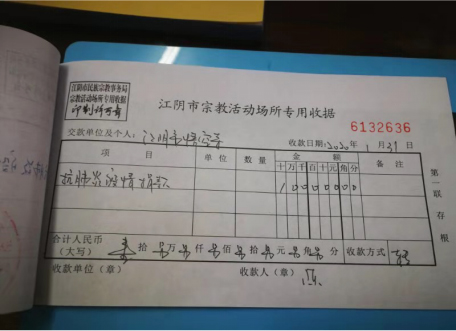 江阴市民族宗教事务局
宗教活动场所专用收据
印制许可章
江阴市宗教活动场所专用收据
6132636
交款单位及个人：江阴市悟空寺
收款日期：2020年1月29日
项目 单位 数量 金额 备注
十万千百十元角分
抗肺炎疫情捐款 10000000
合计人民币（大写） 壹拾零万零仟零佰零拾零元零角零分 收款方式
第一联存根
收款单位（章） 收款人（章）